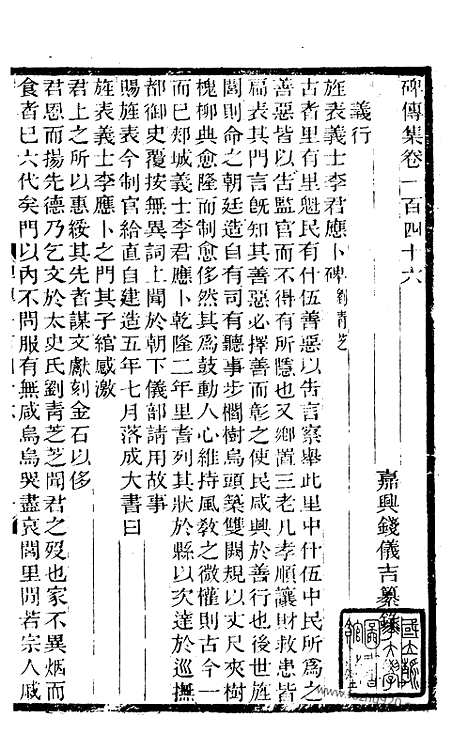 碑傳集卷一百四十六
嘉興錢儀吉纂錄
義行
旌表義士李君應卜碑 劉青芝
古者里有里魁民有什伍善惡以吿言察舉此里中什伍中民所爲之
善惡皆以吿監官而不得有所隱也又鄉置三老凡孝順讓財救患皆
扁表其門言旣知其善惡必擇善而彰之使民咸興於善行也後世旌
閭則命之朝廷造自有司有聽事步櫩樹烏頭築雙闕規以丈尺夾樹
槐柳典愈隆而制愈侈然其爲鼓動人心維持風敎之微懽則古今一
而已郟城義士李君應卜乾隆二年里耆列其狀於縣以次達於巡撫
都御史覆按無異詞上聞於朝下儀部請用故事
賜旌表令制官給直自建造五年七月落成大書曰
旌表義士李應卜之門其子綰感激
君上之所以惠綏其先者謀文獻刻金石以侈
君恩而揚先德乃乞文於太史氏劉青芝芝聞君之歿也家不異烟而
食者已六代矣門以內不問服有無咸烏烏哭盡哀閭里閒若宗人戚